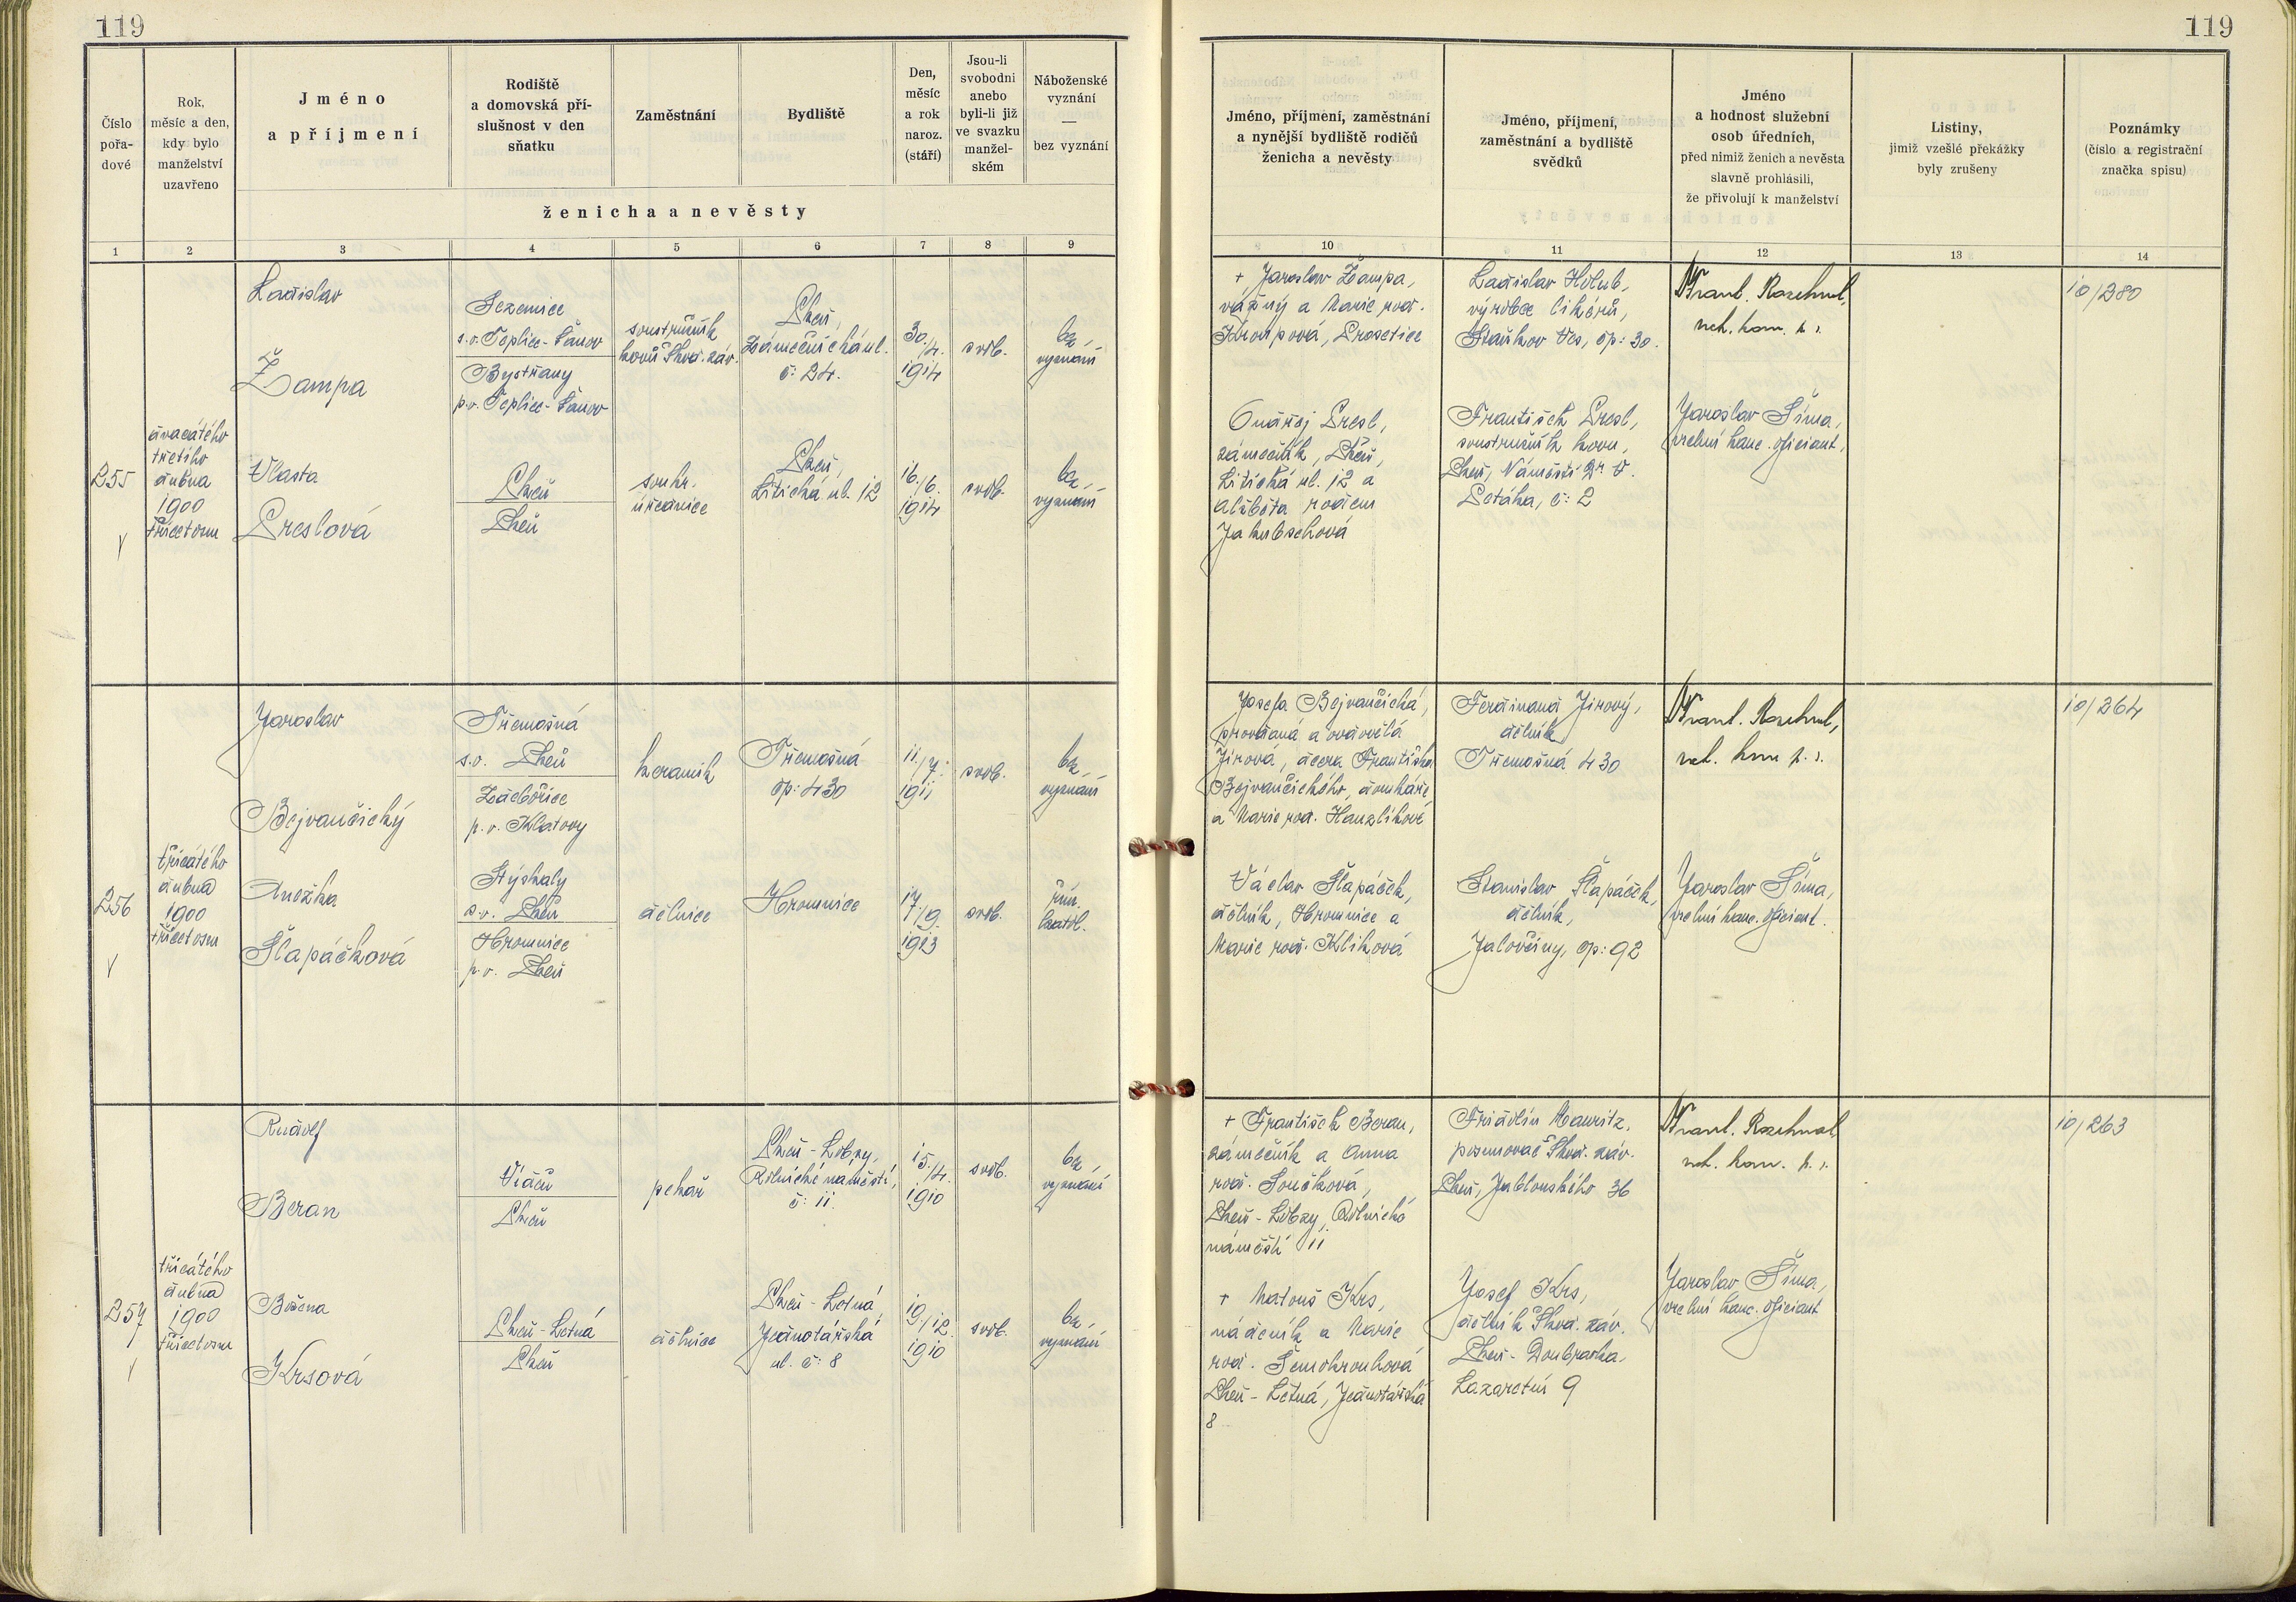 119
Číslo
pořa-
dové
Rok,
měsíc a den,
kdy bylo
manželství
uzavřeno
Jméno
a příjmení
Rodiště
a domovská pří-
slušnost v den
sňatku
Zaměstnání
Bydliště
Den,
měsíc
a rok
naroz.
(stáří)
Jsou-li
svobodni
anebo
byli-li již
ve svazku
manžel-
ském
Náboženské
vyznání
—
bez vyznání
ženicha a nevěsty
1 2 3 4 5 6 7 8 9
255
dvacátého
třetího
dubna
1900
třicetosm
Ladislav
Žampa
s.o. Teplice-Šanov
Bystřany
p.o. Teplice-Šanov
soustružník
kovů Škod. záv.
Plzeň,
Zámečnická ul.
č: 24.
30./4.
1914
svob.
bez
vyznání
Vlasta
Preslová
Plzeň
Plzeň
soukr.
úřednice
Plzeň,
Litická ul. 12
16./6.
1914
svob.
bez
vyznání
256
třicátého
dubna
1900
třicetosm
Jaroslav
Bejvančický
Třemošná
s.o. Plzeň
Zdebořice
p.o. Klatovy
keramik
Třemošná
čp: 430
11./7.
1911
svob.
bez
vyznání
Anežka
Šlapáčková
Stýskaly
s.o. Plzeň
Hromnice
p.o. Plzeň
dělnice
Hromnice
17./9.
1923
svob.
řím.
katol.
257
třicátého
dubna
1900
třicetosm
Rudolf
Beran
Vídeň
Plzeň
pekař
Plzeň-Lobzy,
Rolnické náměstí,
č: 11.
15./4.
1910
svob.
bez
vyznání
Božena
Krsová
Plzeň-Letná
Plzeň
dělnice
Plzeň-Letná,
Jeřnotářská
ul. č: 8
19./12.
1910
svob.
bez
vyznání
119
Jméno, příjmení, zaměstnání
a nynější bydliště rodičů
ženicha a nevěsty
Jméno, příjmení,
zaměstnání a bydliště
svědků
Jméno
a hodnost služební
osob úředních,
před nimiž ženich a nevěsta
slavně prohlásili,
že přivolují k manželství
Listiny,
jimiž vzešlé překážky
byly zrušeny
Poznámky
(číslo a registrační
značka spisu)
10 11 12 13 14
+ Jaroslav Žampa,
vážný a Marie rod.
Kroupová, Prosetice
Ladislav Holub,
výrobce likérů,
Staňkov Ves, čp: 30.
10/280
Ondřej Presl,
zámečník, Plzeň,
Litická ul. 12 a
Alžběta rodem
Jakubschová
František Presl,
soustružník kovu,
Plzeň, Náměstí Dr. V.
Petáka, č: 2
Jaroslav Šíma,
vrchní kanc. oficiant.
Josefa Bejvančická,
provdaná a ovdovělá
Jírová, dcera Františka
Bejvančického, domkáře
a Marie rod. Hanzlíkové
Ferdinand Jírový,
dělník
Třemošná 430
10/264
Václav Šlapáček,
dělník, Hromnice a
Marie rod. Klíková
Stanislav Šlapáček,
dělník,
Jalovčiny, čp: 92
Jaroslav Šíma,
vrchní kanc. oficiant.
+ František Beran,
zámečník a Anna
rod. Součková,
Plzeň-Lobzy, Rolnické
náměstí 11
Fridolín Mauritz,
posunovač Škod. záv.
Plzeň, Jablonského 36
10/263
+ Matouš Krs,
nádeník a Marie
rod.
Plzeň-Letná,
8
Josef Krs,
dělník Škod. záv.
Plzeň-Doubravka,
Lazaretní 9
Jaroslav Šíma,
vrchní kanc. oficiant